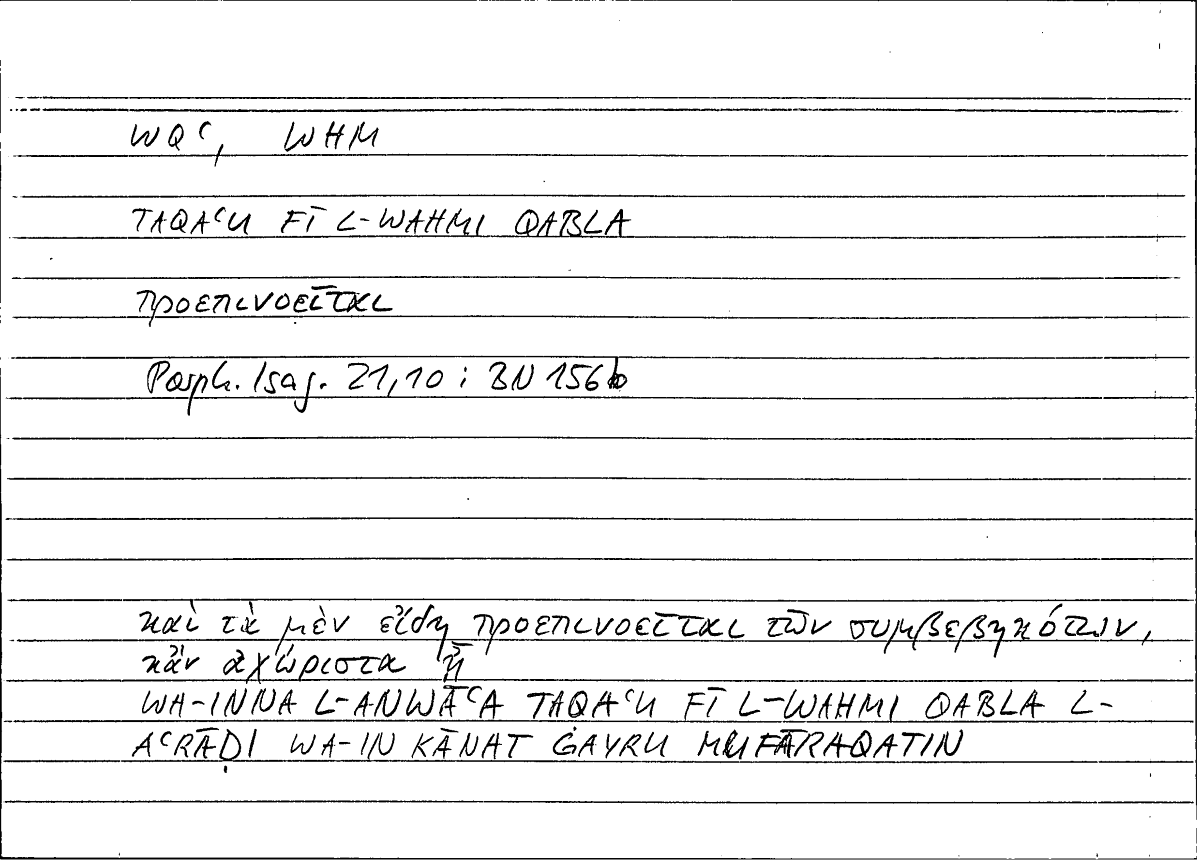 WQʿ, WHM
TAQAʿU FĪ L-WAHMI QABLA
προεπινοεῖται
Porph. Isag. 21,10 ; BN 156b
καὶ τὰ μὲν εἴδη προεπινοεῖται τῶν συμβεβηκότων,
κἂν ἀχώριστα ᾖ
WA-INNA L-ANWĀʿA TAQAʿU FĪ L-WAHMI QABLA L-
AʿRĀḌI WA-IN KĀNAT ĠAYRU MUFĀRAQATIN